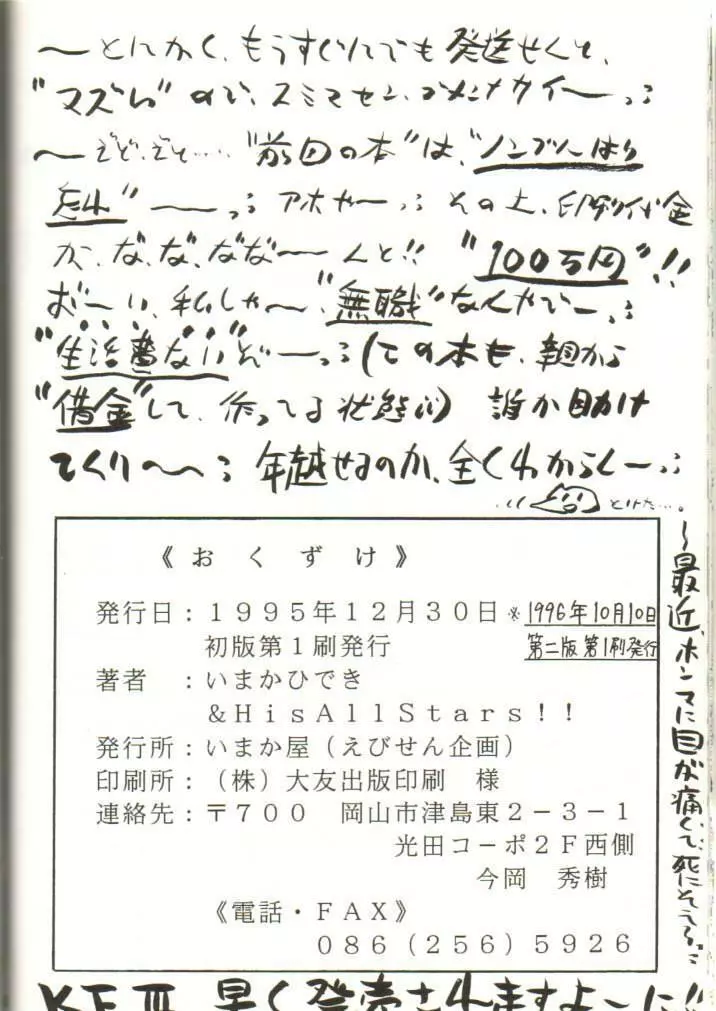 〜とにかく、もうすぐにでも発送せんと、
"マズい"ので、スミマセン、ゴメンナサイ〜っ;
"前回の本"は、"ノンブルはり
忘れ"——っ; アホやーっ; その上、印刷代金
が、な、な、なな〜んと!! "100万円"!!
お〜い、私しゃ〜、"無職"なんやで〜っ;
"生活費ない"ぞ〜っ;(この本も、親から
"借金"して、作ってる状態;;) 誰か助け
てくり〜〜; 年越せるのか、全くわからん〜っ;
とけた…。
《おくずけ》
発行日:1995年12月30日 ※1996年10月10日
初版第1刷発行 第二版第1刷発行
著者 :いまかひでき
&HisAllStars!!
発行所:いまか屋(えびせん企画)
印刷所:(株)大友出版印刷 様
連絡先:〒700 岡山市津島東2-3-1
光田コーポ2F西側
今岡 秀樹
《電話・FAX》
086(256)5926
〜最近、ホンマに目が痛くて、死にそうっ;
早く発売されますよーに!!